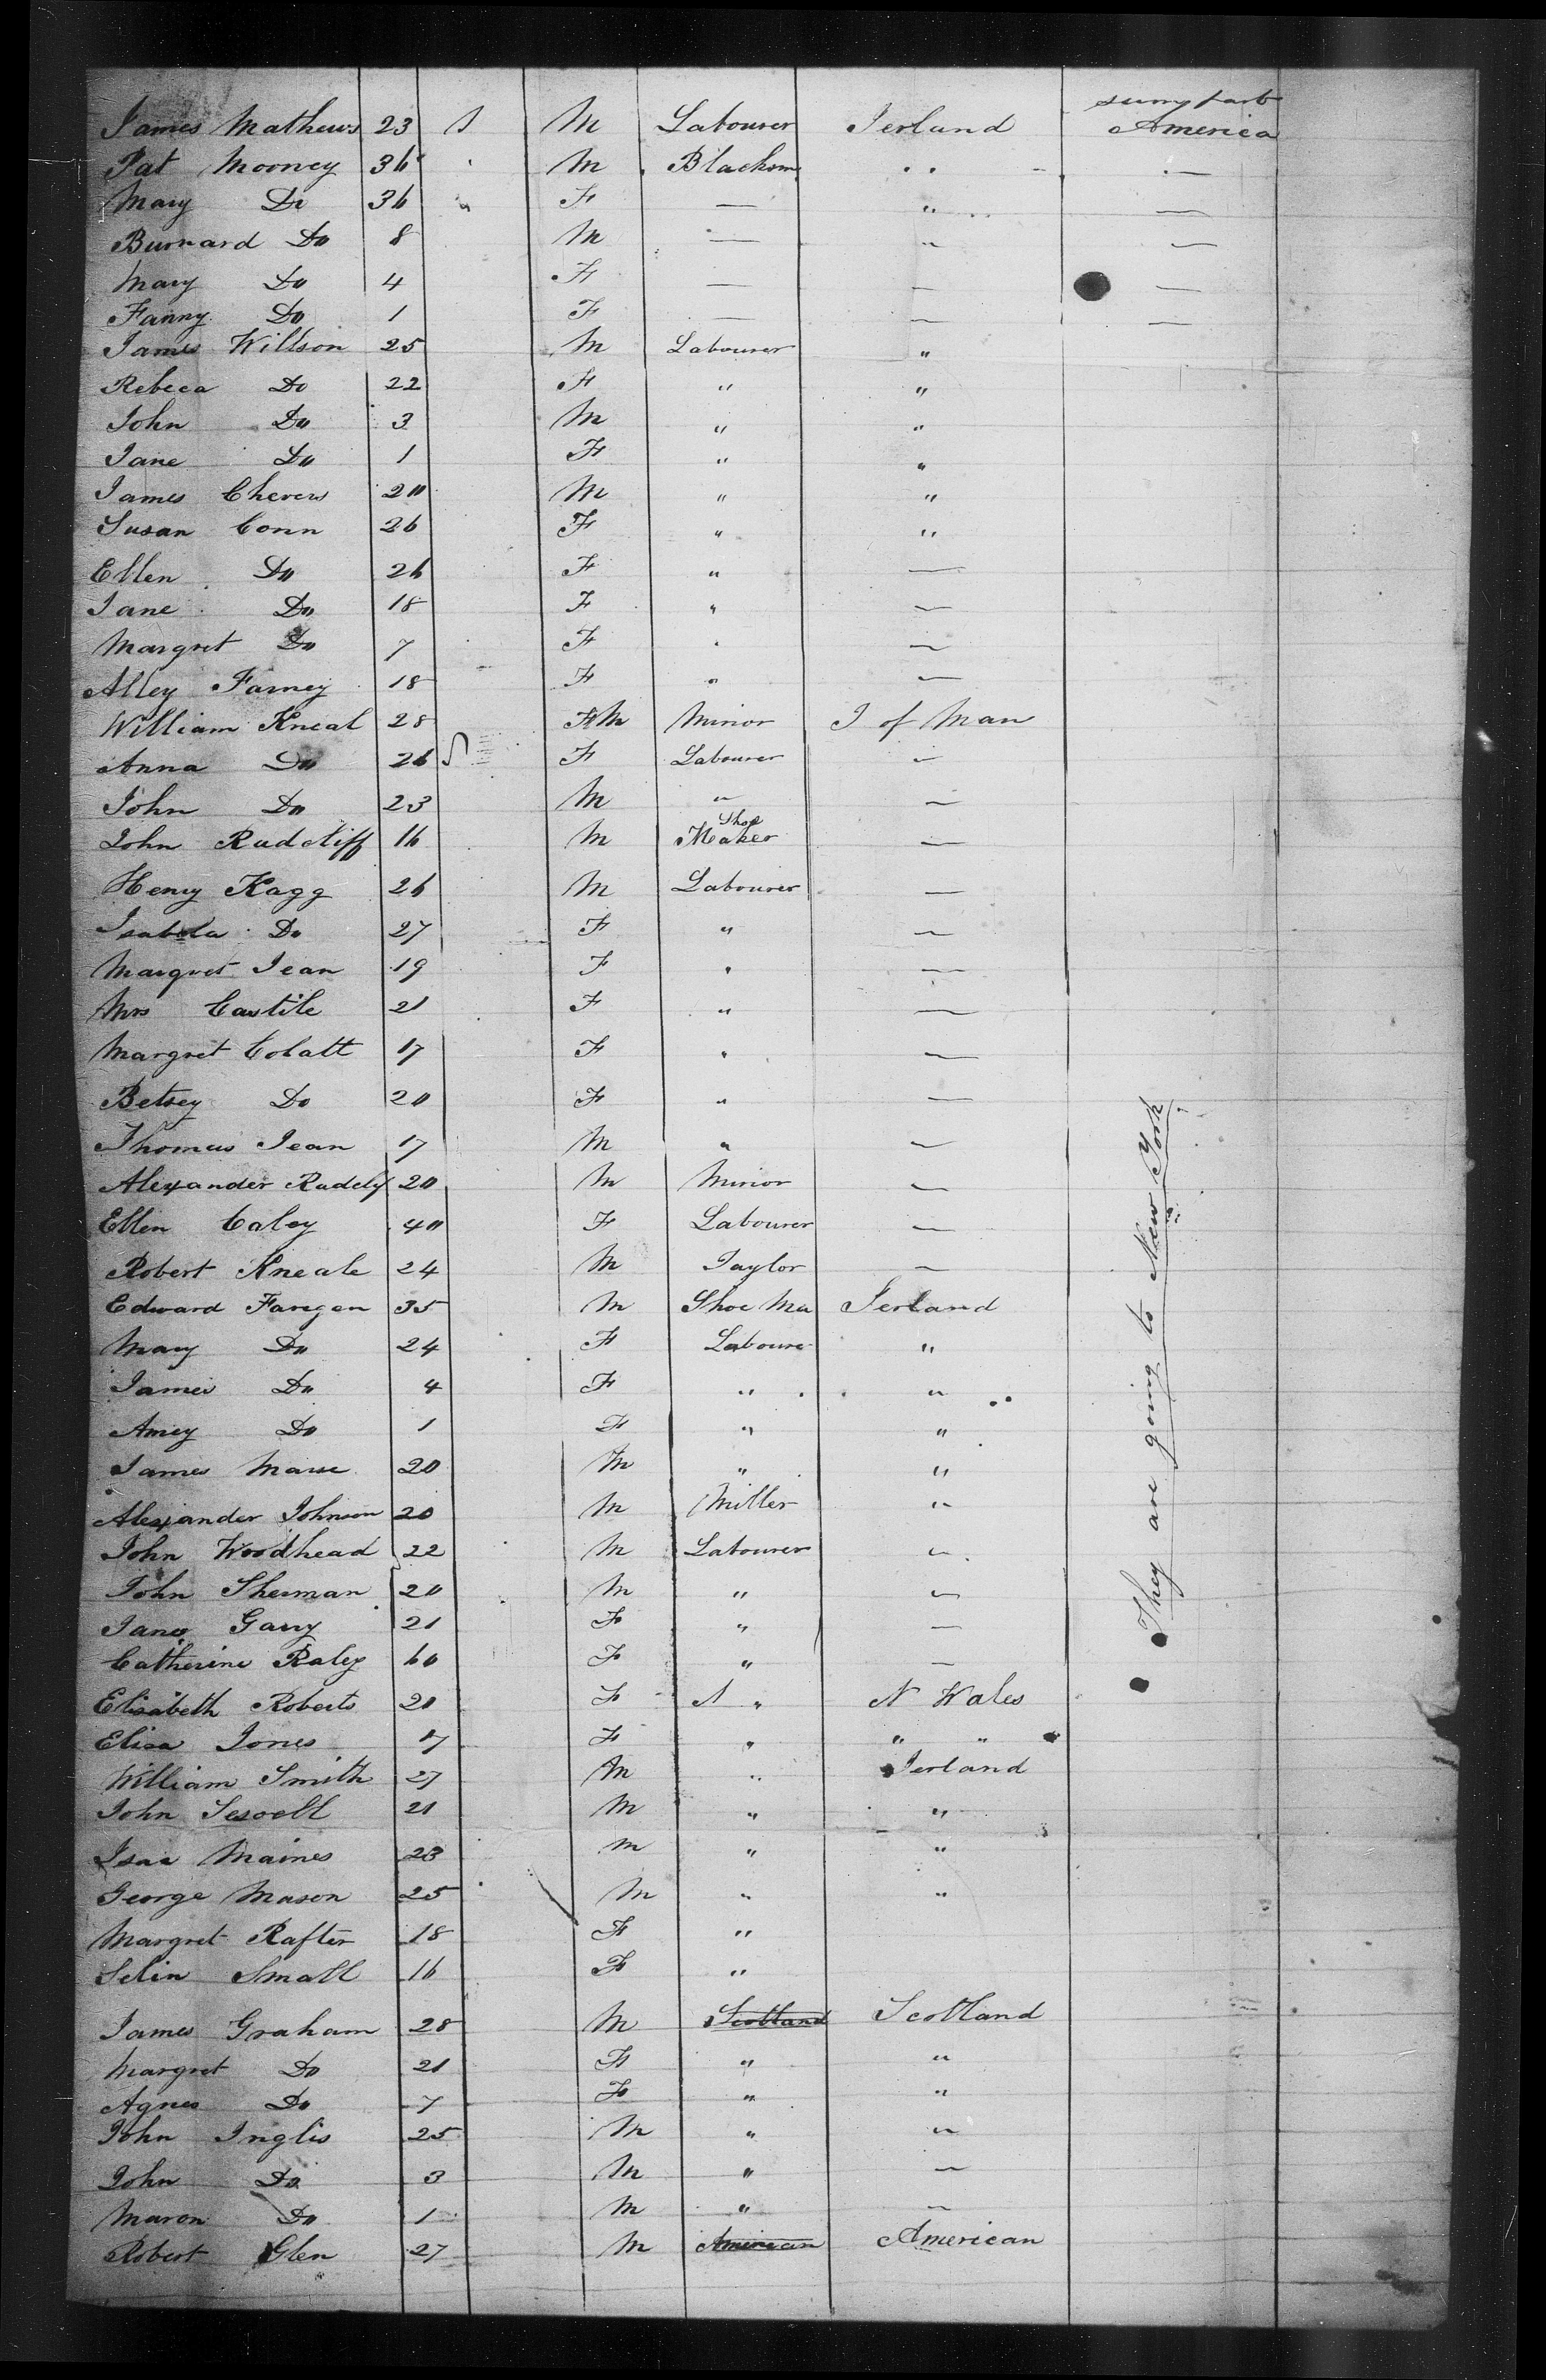 suny part
James Mathews 23 S M Labourer Ierland America
Pat Mooney 36 " M Blacksm " " —
Mary Do 36 " F — " —
Burnard Do 8 M — " —
Mary Do 4 F — — —
Fanny Do 1 F — — —
James Willson 25 M Labourer "
Rebeca Do 22 F " "
John Do 3 M " "
Jane Do 1 F " "
James Chevers 20 M " "
Susan Conn 26 F " "
Ellen Do 26 F " —
Jane Do 18 F " —
Margret Do 7 F " —
Alley Farney 18 F " —
William Kneal 28 F M Minior I of Man
Anna Do 26 F Labourer —
John Do 23 M " —
John Radcliff 16 M Shoe Meaker —
Henry Kagg 26 M Labourer —
Isabela Do 27 F " —
Margret Jean 19 F " —
Mrs Castile 21 F " —
Margret Colatt 17 F " —
Betsey Do 20 F " —
Thomas Jean 17 M " —
Alexander Radclif 20 M Minior —
Ellen Caley 40 F Labourer —
Robert Kneale 24 M Taylor —
Edward Faregan 35 M Shoe Ma Ierland
Mary Do 24 F Laboure "
James Do 4 F " "
Amey Do 1 F " "
James Marse 20 M " "
Alexander Johnson 20 M Miller "
John Woodhead 22 M Labourer "
John Sherman 20 M " —
Jane Garry 21 F " —
Catherine Raley 60 F " —
Elisabeth Roberts 20 F " N Wales
Elisa Jones 17 F " " "
William Smith 27 M " Ierland
John 21 M " "
Isac Maines 23 M " "
George Mason 25 M " "
Margret Rafter 18 F "
Selin Small 16 F "
James Graham 28 M Scotland Scotland
Margret Do 21 F " "
Agnes Do 7 F " "
John Inglis 25 M " "
John Do 3 M " —
Maron Do 1 M " —
Robert Glen 27 M American American
They are going to New York